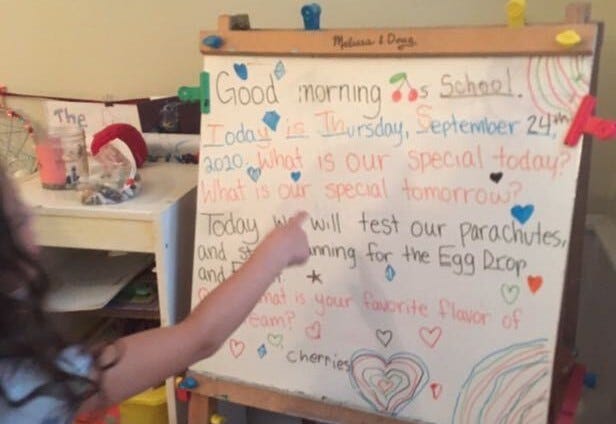 Melissa & Doug
The
Good morning s School.
Today is Thursday, September 24th,
2020. What is our special today?
What is our special tomorrow?
Today we will test our parachutes,
and for the Egg Drop
and
what is your favorite flavor of
cream?
cherries